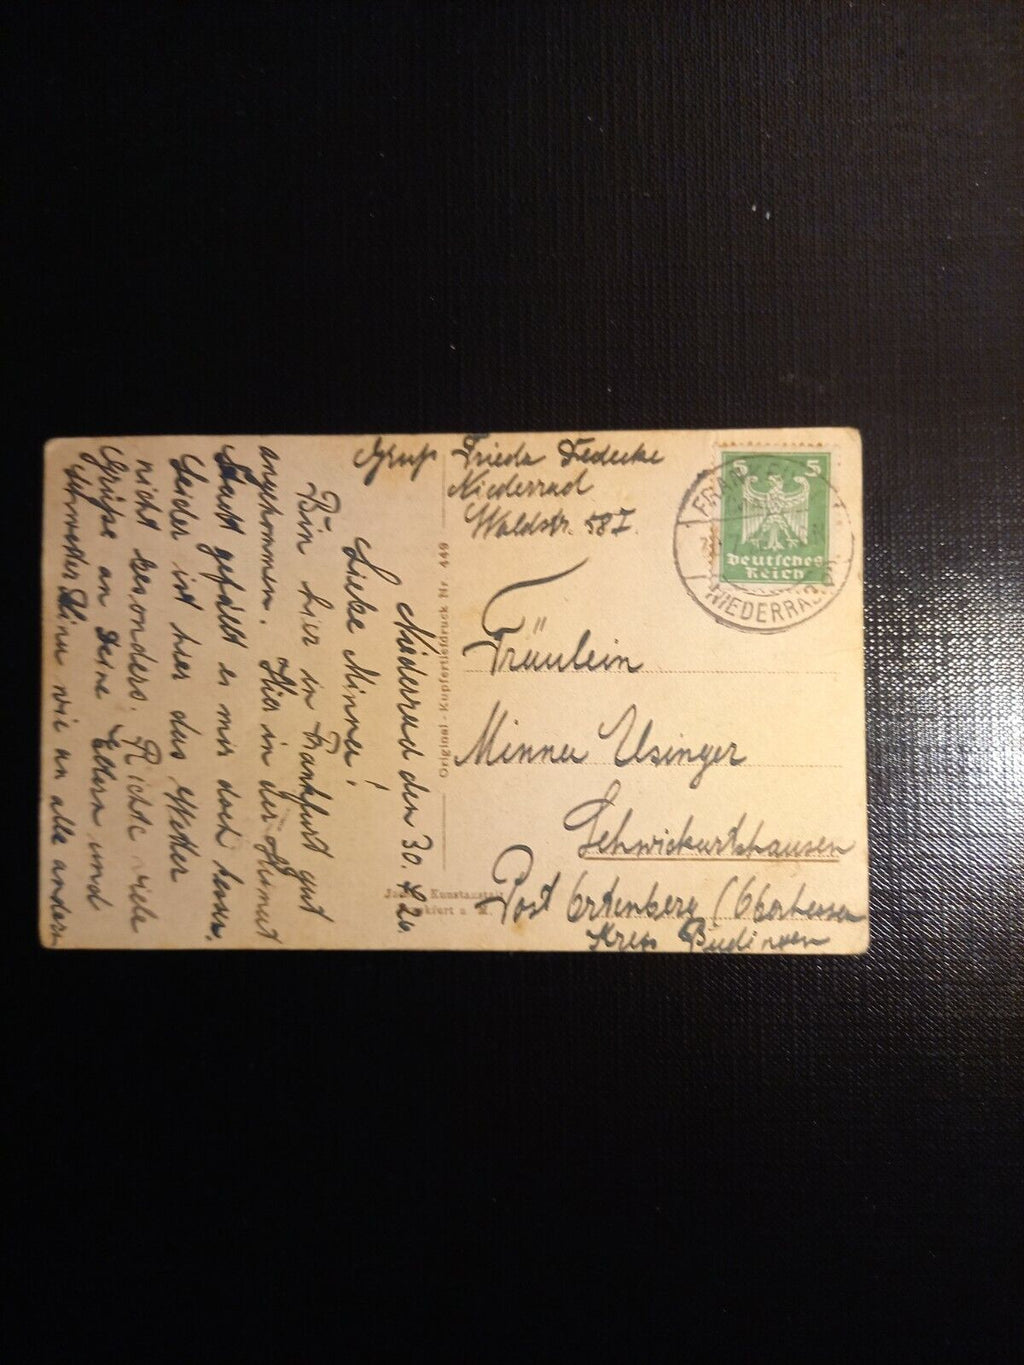 Niederrad den 30.4.26.
Liebe Minna!
Bin hier in Frankfurt gut
angekommen. Hier in der
Stadt gefällt es mir doch besser.
Leider ist hier das Wetter
nicht besonders. Richte viele
Grüße an Deine Eltern und
wie an alle andern
Gruß Frieda
Niederrad
Waldstr. 58 I.
Original-Kupfertiefdruck Nr. 449
Kunstanstalt
Frankfurt a. M.
5 5
Deutsches
Reich
FRANKFURT
NIEDERRAD
Fräulein
Minna Usinger
Schwickartshausen
Post Ortenberg (Oberhessen
Kreis Büdingen